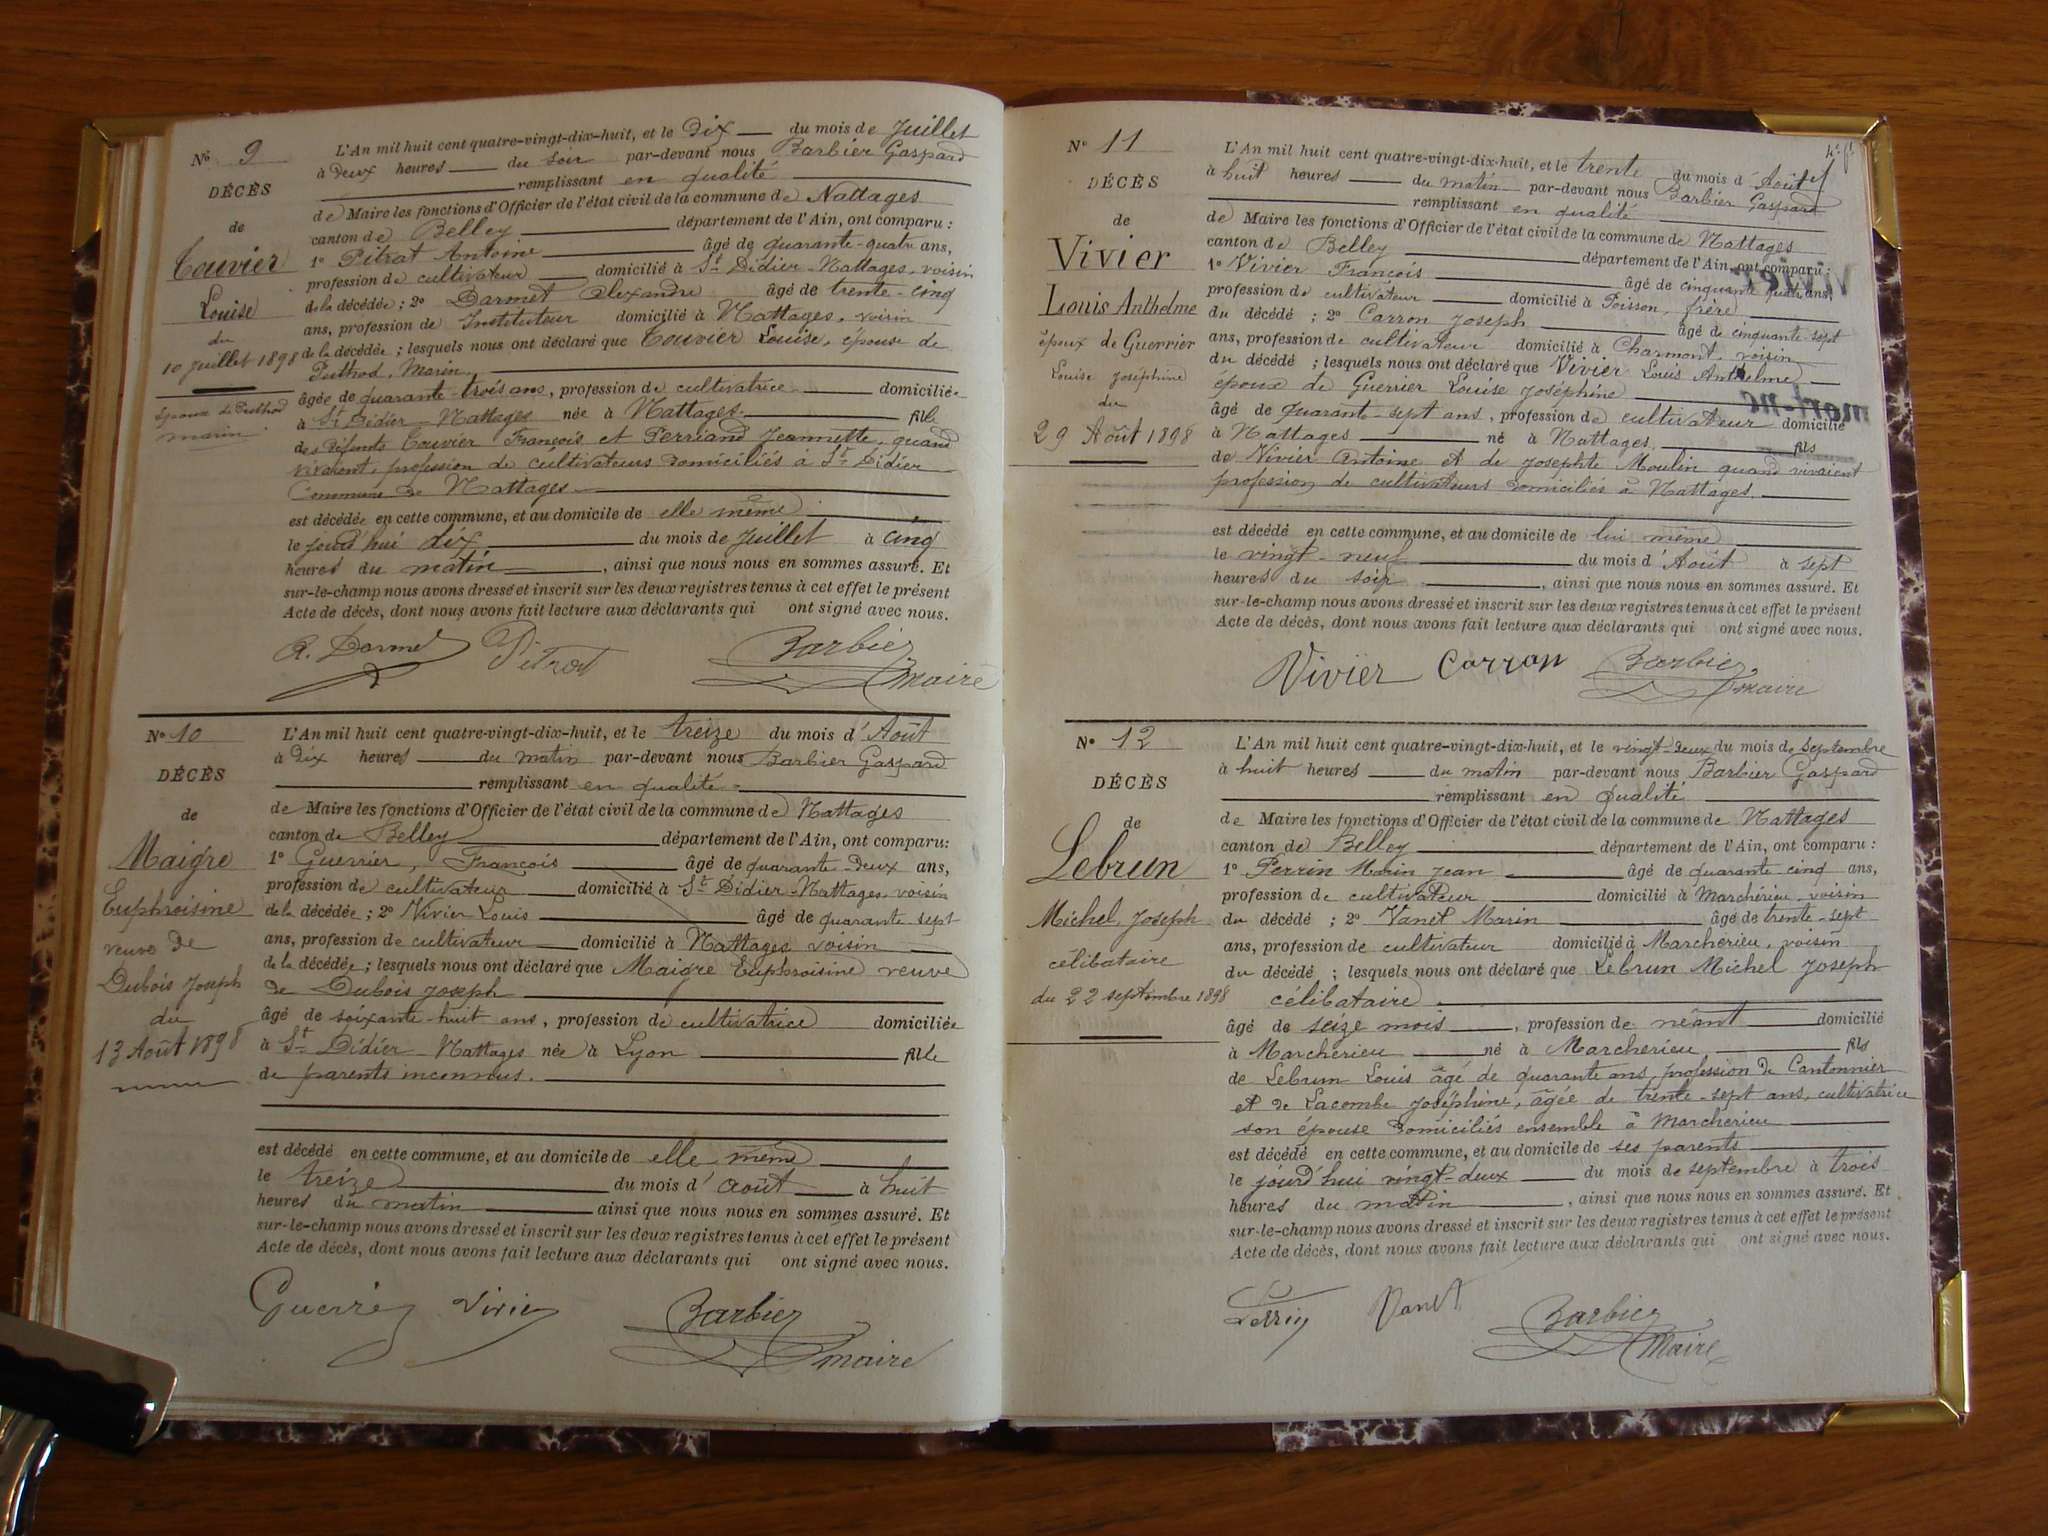 N° 9
DÉCÈS
de
Touvier
Louise
du
10 Juillet 1898
épouse de Puthod
marin
L'An mil huit cent quatre-vingt-dix-huit, et le Dix du mois de Juillet
à deux heures du soir par-devant nous Barbier Gaspard
remplissant en qualité
de Maire les fonctions d'Officier de l'état civil de la commune de Nattages
canton de Belley département de l'Ain, ont comparu :
1° Pitrat Antoine âgé de quarante-quatre ans,
profession de cultivateur domicilié à St Didier-Nattages, voisin
de la décédée ; 2° Darmet Alexandre âgé de trente-cinq
ans, profession de Instituteur domicilié à Nattages, voisin
de la décédée ; lesquels nous ont déclaré que Touvier Louise, épouse de
Puthod, Marin
âgée de quarante-trois ans, profession de cultivatrice domiciliée
à St Didier-Nattages née à Nattages fille
des défunts Touvier François et Perriand Jeannette, quand
vivaient, profession de cultivateurs domiciliés à St Didier
Commune de Nattages
est décédée en cette commune, et au domicile de elle même
le jourd'hui dix du mois de Juillet à cinq
heures du matin, ainsi que nous nous en sommes assuré. Et
sur-le-champ nous avons dressé et inscrit sur les deux registres tenus à cet effet le présent
Acte de décès, dont nous avons fait lecture aux déclarants qui ont signé avec nous.
A. Darmet Pitrat Barbier
maire
N° 10
DÉCÈS
de
Maigre
Euphroisine
veuve de
Dubois Joseph
du
13 Août 1898
L'An mil huit cent quatre-vingt-dix-huit, et le treize du mois d'Août
à dix heures du matin par-devant nous Barbier Gaspard
remplissant en qualité
de Maire les fonctions d'Officier de l'état civil de la commune de Nattages
canton de Belley département de l'Ain, ont comparu:
1° Guerrier, François âgé de quarante-deux ans,
profession de cultivateur domicilié à St Didier-Nattages, voisin
de la décédée ; 2° Vivier Louis âgé de quarante sept
ans, profession de cultivateur domicilié à Nattages voisin
de la décédée ; lesquels nous ont déclaré que Maigre Euphroisine veuve
de Dubois Joseph
âgé de soixante-huit ans, profession de cultivatrice domiciliée
à St Didier-Nattages née à Lyon fille
de parents inconnus.
est décédé en cette commune, et au domicile de elle-même
le treize du mois d'août à huit
heures du matin ainsi que nous nous en sommes assuré. Et
sur-le-champ nous avons dressé et inscrit sur les deux registres tenus à cet effet le présent
Acte de décès, dont nous avons fait lecture aux déclarants qui ont signé avec nous.
Guerrier Vivier Barbier
maire
N° 11
DÉCÈS
de
Vivier
Louis Anthelme
époux de Guerrier
Louise Joséphine
du
29 Août 1898
L'An mil huit cent quatre-vingt-dix-huit, et le trente du mois d'Août
à huit heures du matin par-devant nous Barbier Gaspard
remplissant en qualité
de Maire les fonctions d'Officier de l'état civil de la commune de Nattages
canton de Belley département de l'Ain, ont comparu :
1° Vivier François âgé de cinquante quatre ans,
profession de cultivateur domicilié à Poisson, frère
du décédé ; 2° Carron Joseph âgé de cinquante-sept
ans, profession de cultivateur domicilié à Charmont, voisin
du décédé ; lesquels nous ont déclaré que Vivier Louis Anthelme
époux de Guerrier Louise Joséphine
âgé de quarante-sept ans, profession de cultivateur domicilié
à Nattages né à Nattages fils
de Vivier Antoine et de Josephte Moulin quand vivaient
profession de cultivateurs domiciliés à Nattages.
est décédé en cette commune, et au domicile de lui même
le vingt-neuf du mois d'Août à sept
heures du soir, ainsi que nous nous en sommes assuré. Et
sur-le-champ nous avons dressé et inscrit sur les deux registres tenus à cet effet le présent
Acte de décès, dont nous avons fait lecture aux déclarants qui ont signé avec nous.
Vivier Carron Barbier
maire
N° 12
DÉCÈS
de
Lebrun
Michel, Joseph
célibataire
du 22 septembre 1898
L'An mil huit cent quatre-vingt-dix-huit, et le vingt-deux du mois de Septembre
à huit heures du matin par-devant nous Barbier Gaspard
remplissant en qualité
de Maire les fonctions d'Officier de l'état civil de la commune de Nattages
canton de Belley département de l'Ain, ont comparu :
1° Perrin Marin Jean âgé de quarante cinq ans,
profession de cultivateur domicilié à Marchérieu, voisin
du décédé ; 2° Vanet Marin âgé de trente-sept
ans, profession de cultivateur domicilié à Marcherieu, voisin
du décédé ; lesquels nous ont déclaré que Lebrun Michel Joseph
célibataire
âgé de seize mois, profession de néant domicilié
à Marcherieu né à Marcherieu fils
de Lebrun Louis âgé de quarante ans, profession de Cantonnier
et de Lacombe Joséphine, âgée de trente-sept ans, cultivatrice
son épouse domiciliés ensemble à Marcherieu
est décédé en cette commune, et au domicile de ses parents
le jourd'hui vingt-deux du mois de septembre à trois
heures du matin, ainsi que nous nous en sommes assuré. Et
sur-le-champ nous avons dressé et inscrit sur les deux registres tenus à cet effet le présent
Acte de décès, dont nous avons fait lecture aux déclarants qui ont signé avec nous.
Perrin Vanet Barbier
Maire